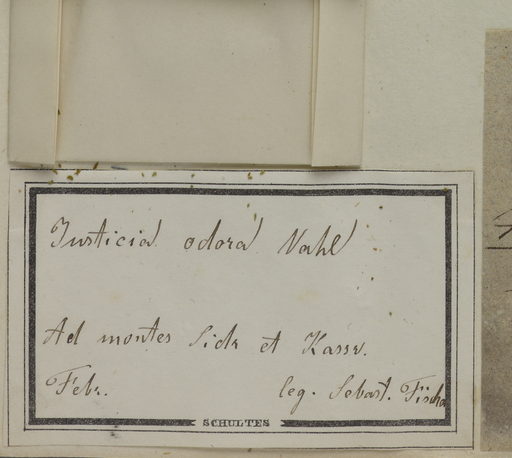 Justicia odora Vahl
Ad montes Sidr et Kassr.
Febr. leg. Sebast. Fischer
SCHULTES